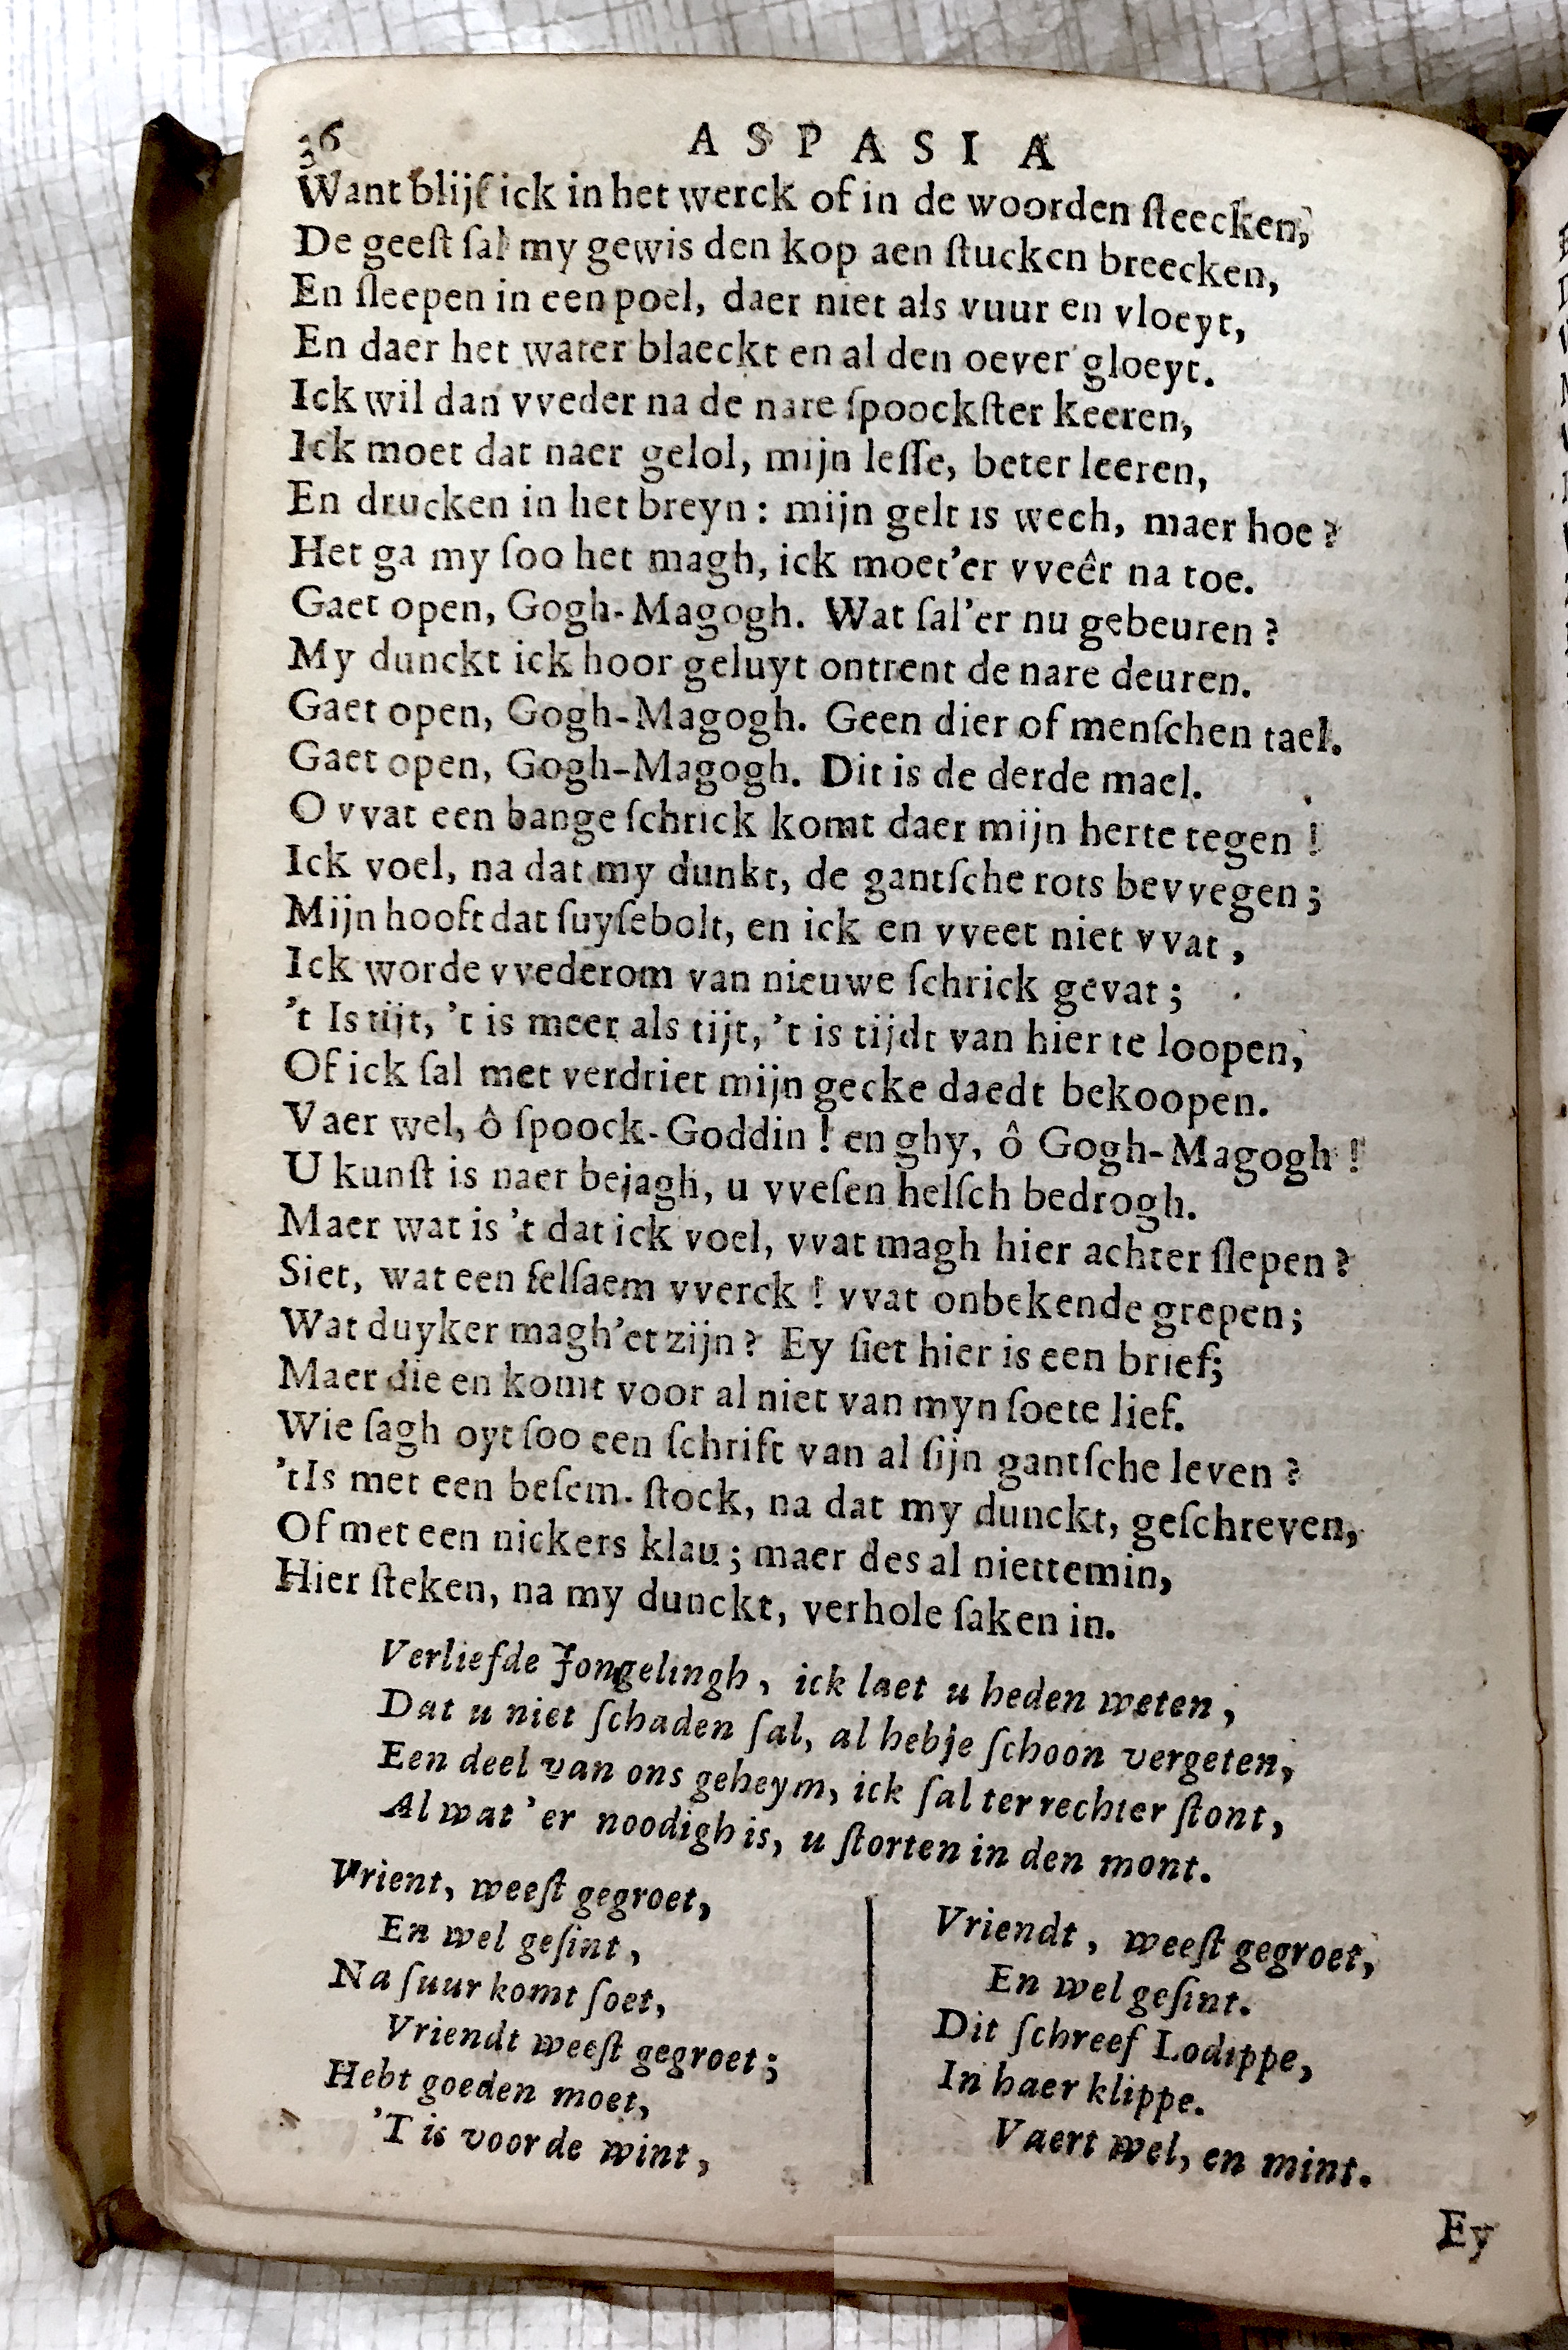 36 ASPASIA
Want blijf ick in het werck of in de woorden ſteecken,
De geeſt ſal my gewis den kop aen ſtucken breecken,
En ſleepen in een poel, daer niet als vuur en vloeyt,
En daer het water blaeckt en al den oever gloeyt.
Ick wil dan vveder na de nare ſpoockſter keeren,
Ick moet dat naer gelol, mijn leſſe, beter leeren,
En drucken in het breyn: mijn gelt is wech, maer hoe?
Het ga my ſoo het magh, ick moet'er vveêr na toe.
Gaet open, Gogh-Magogh. Wat ſal'er nu gebeuren?
My dunckt ick hoor geluyt ontrent de nare deuren.
Gaet open, Gogh-Magogh. Geen dier of menſchen tael.
Gaet open, Gogh-Magogh. Dit is de derde mael.
O vvat een bange ſchrick komt daer mijn herte tegen!
Ick voel, na dat my dunkt, de gantſche rots bevvegen;
Mijn hooft dat ſuyſebolt, en ick en vveet niet vvat,
Ick worde vvederom van nieuwe ſchrick gevat;
't Is tijt, 't is meer als tijt, 't is tijdt van hier te loopen,
Of ick ſal met verdriet mijn gecke daedt bekoopen.
Vaer wel, ô ſpoock-Goddin! en ghy, ô Gogh-Magogh!
U kunſt is naer bejagh, u vveſen helſch bedrogh.
Maer wat is 't dat ick voel, vvat magh hier achter ſlepen?
Siet, wat een ſelſaem vverck! vvat onbekende grepen;
Wat duyker magh'et zijn? Ey ſiet hier is een brief;
Maer die en komt voor al niet van myn ſoete lief.
Wie ſagh oyt ſoo een ſchrift van al ſijn gantſche leven?
'tIs met een beſem-ſtock, na dat my dunckt, geſchreven,
Of met een nickers klau; maer des al niettemin,
Hier ſteken, na my dunckt, verhole ſaken in.
Verliefde Jongelingh, ick laet u heden weten,
Dat u niet ſchaden ſal, al hebje ſchoon vergeten,
Een deel van ons geheym, ick ſal ter rechter ſtont,
Al wat 'er noodigh is, u ſtorten in den mont.
Vrient, weeſt gegroet,
En wel geſint,
Na ſuur komt ſoet,
Vriendt weeſt gegroet;
Hebt goeden moet,
'T is voor de wint,
Vriendt, weeſt gegroet,
En wel geſint.
Dit ſchreef Lodippe,
In haer klippe.
Vaert wel, en mint.
Ey